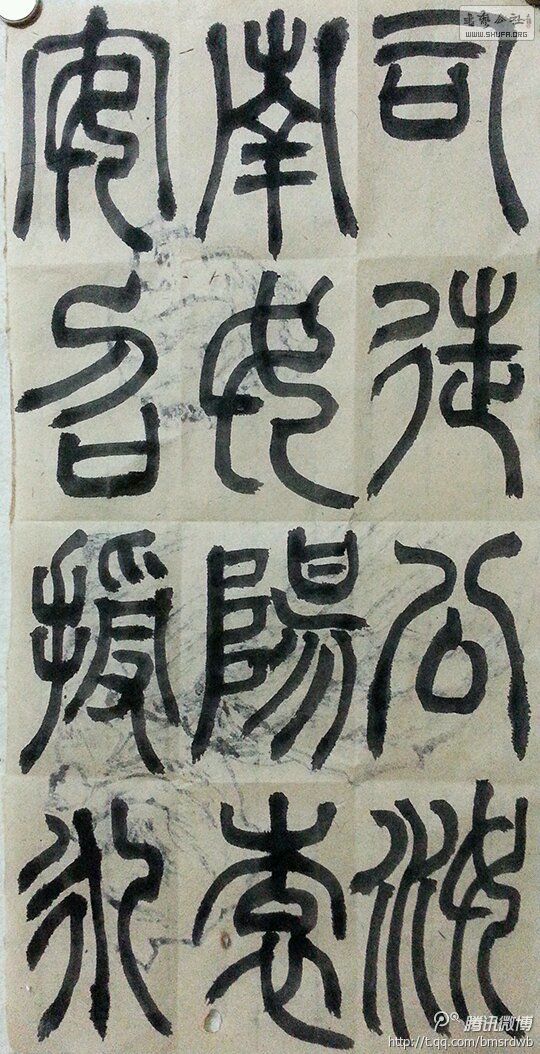 司徒公汝
南女陽袁
安召授永
書藝公社
WWW.SHUFA.ORG
腾讯微博
http://t.qq.com/bmsrdwb